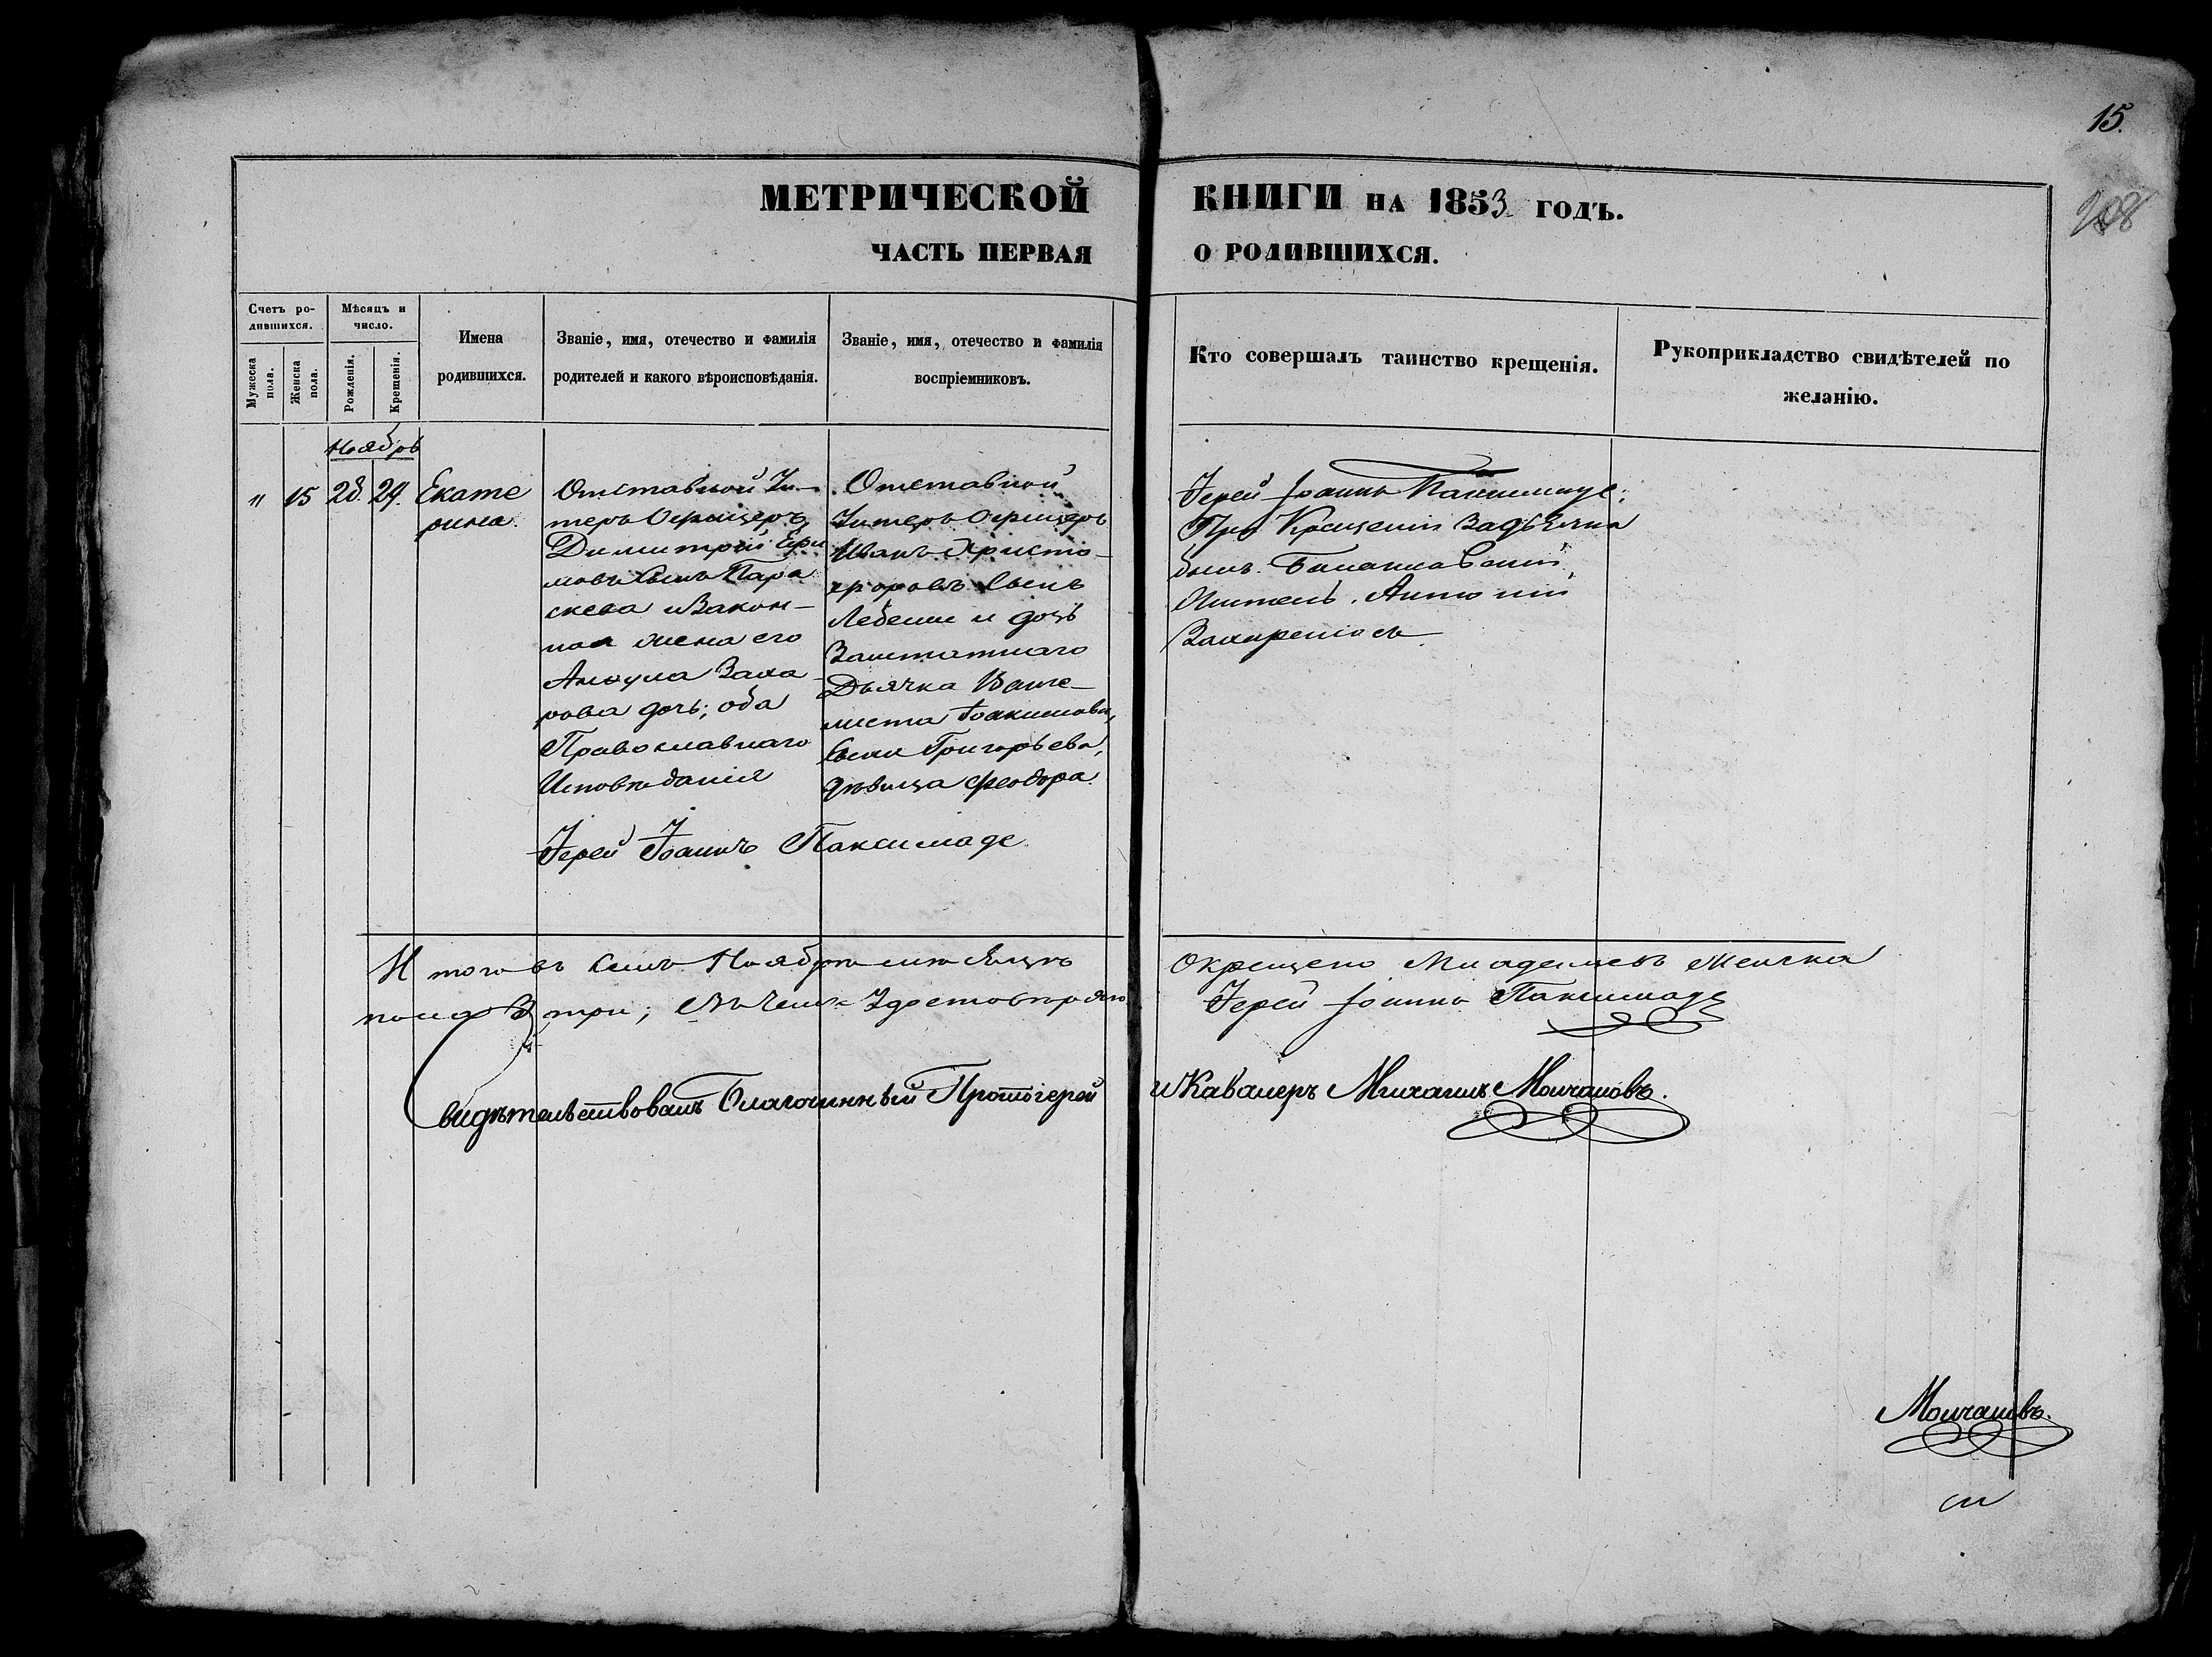 15.
208
МЕТРИЧЕСКОЙ КНИГИ НА 1853 ГОДЪ.
ЧАСТЬ ПЕРВАЯ О РОДИВШИХСЯ.
Счетъ ро-
дившихся.
Мужеска пола.
Женска пола.
Мѣсяцъ и
число.
Рожденія.
Крещенія.
Имена
родившихся.
Званіе, имя, отечество и фамилія
родителей и какого вѣроисповѣданія.
Званіе, имя, отечество и фамилія
воспріемниковъ.
Кто совершалъ таинство крещенія.
Рукоприкладство свидѣтелей по
желанію.
Ноябрь
" 15 28. 29.
Екате
рина.
Отставной Ун-
теръ Офицеръ,
Димитрий
сынъ Пара
скева и Закон-
ная жена его
Заха
рова дочь; оба
Православнаго
Исповѣданія
Отставной
Унтеръ Офицеръ
Иванъ Христо-
форовъ Сынъ
и дочь
Заштатнаго
Дьячка
Іоакимова,
Сына Григорьева,
дѣвица Феодора.
Іерей Іоаннъ Паксимаде.
При Крещеніи За дьячка
былъ.
Житель, Антоній
Іерей Іоаннъ Паксимаде.
Итого въ семъ Ноябрѣ мѣсяцѣ Окрещено Младенцевъ Женска
пола 3, три; въ чемъ Удостовѣряю Іерей Іоаннъ Паксимаде
Свидѣтельствовалъ Благочинный Протоіерей и Кавалеръ Михаилъ Молчановъ.
Молчановъ.